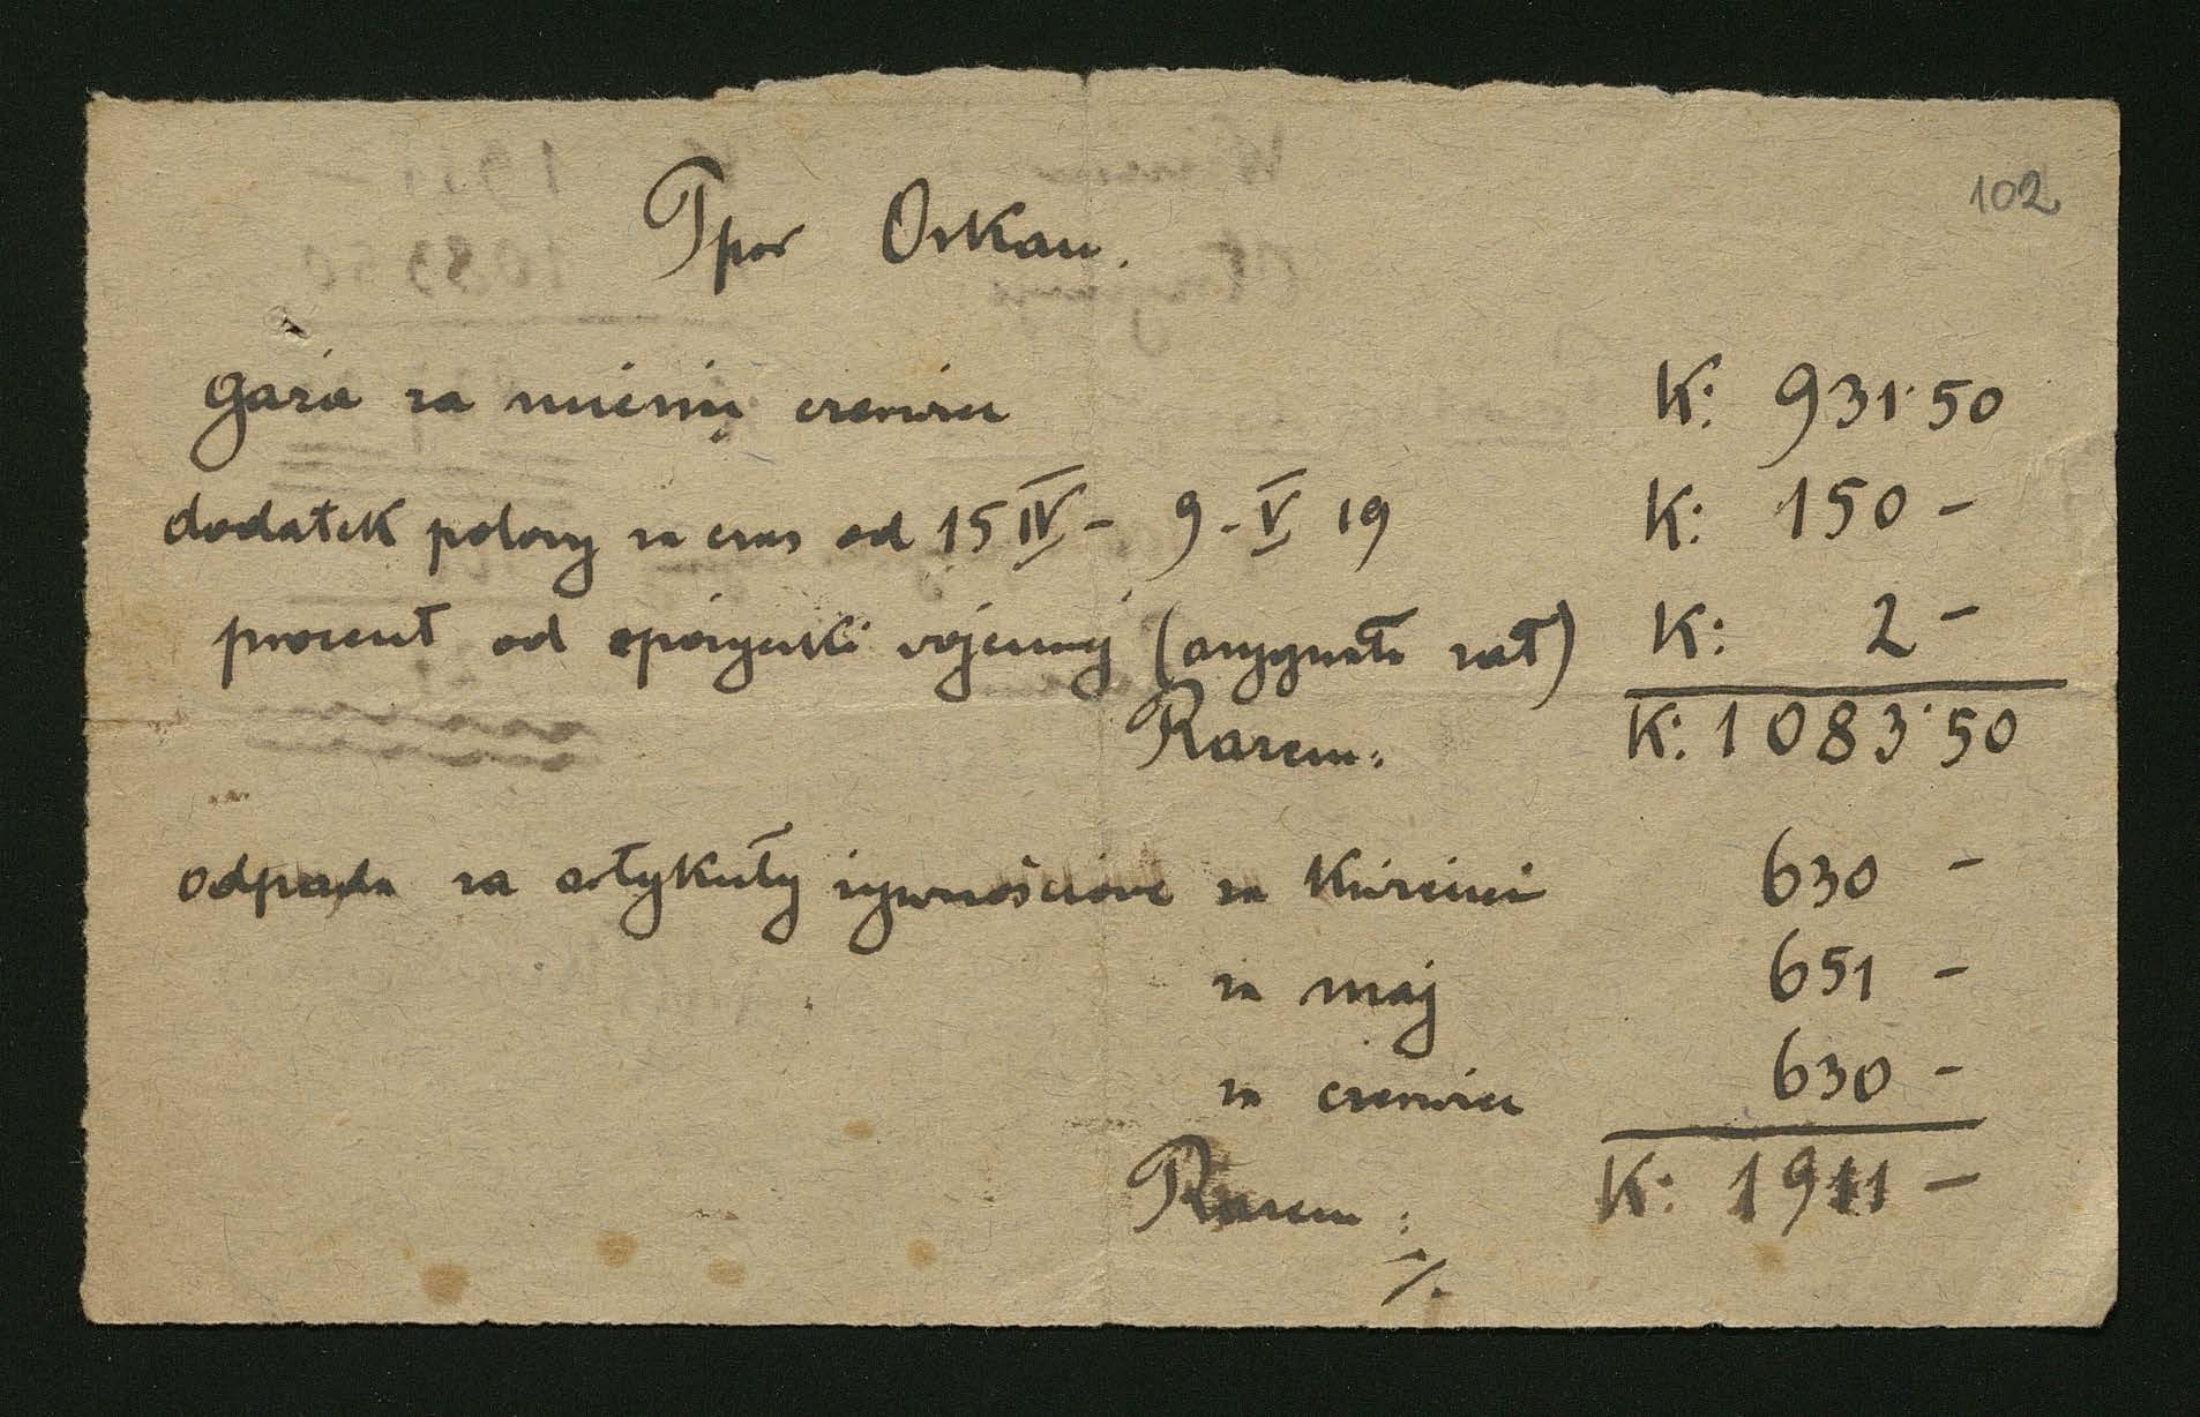 102
Ppor Orkan.
Gaża za miesiąc czerwiec K: 931·50
dodatek polowy za czas od 15 IV – 9 – V 19 K: 150 –
procent od pożyczki wojennej (asygnata zał) K: 2 –
Razem: K: 1083·50
odpada za artykuły żywnościowe za kwiecień 630 –
za maj 651 –
za czerwiec 630 –
Razem: K: 1911 –
./.